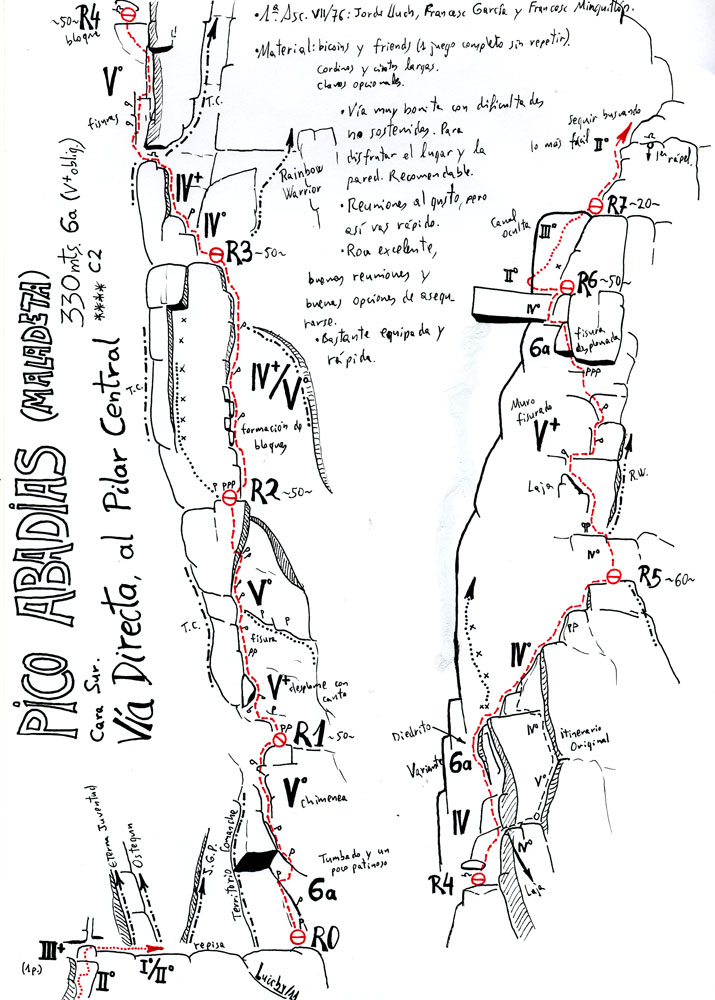 PICO ABADÍAS (MALADETA)
Cara Sur.
330 mts. 6a (V+ oblig.)
Vía Directa, al Pilar Central
**** C2
• 1ª Asc. VII/76: Jordi Lluch, Francesc García y Francesc Minguillón.
• Material: bicoins y friends (1 juego completo sin repetir).
cordinos y cintas largas.
clavos opcionales.
• Vía muy bonita con dificultades
no sostenidas. Para
disfrutar el lugar y la
pared. Recomendable.
• Reuniones al gusto, pero
así vas rápido.
• Roca excelente,
buenas reuniones y
buenas opciones de asegu
rarse.
• Bastante equipada y
rápida.
R4
~50~
bloque
V°
fisuras
T.C.
IV+
IV°
Rainbow
Warrior
R3 ~50~
T.C.
IV+/V°
formación de
bloques
PPP
R2 ~50~
V°
T.C.
fisura
PP
V+
desplome con
canto
PP
R1 ~50~
V°
chimenea
Eterna Juventud
Ostegun
J.G.P.
Territorio Comanche
Tumbado y un
poco patinoso
6a
R0
III+
(1p.)
II°
I°/II°
repisa
Luichy/11
seguir buscando
lo más fácil
II°
1er rápel.
R7 ~20~
Canal
oculta
III°
II°
R6 ~50~
IV°
6a
fisura
desplomada
PPP
Muro
fisurado
V+
Laja
R.W.
IV°
R5 ~60~
PP
IV°
Diedrito
Variante
6a
IV°
itinerario
Original
V°
IV
IV°
Laja
R4